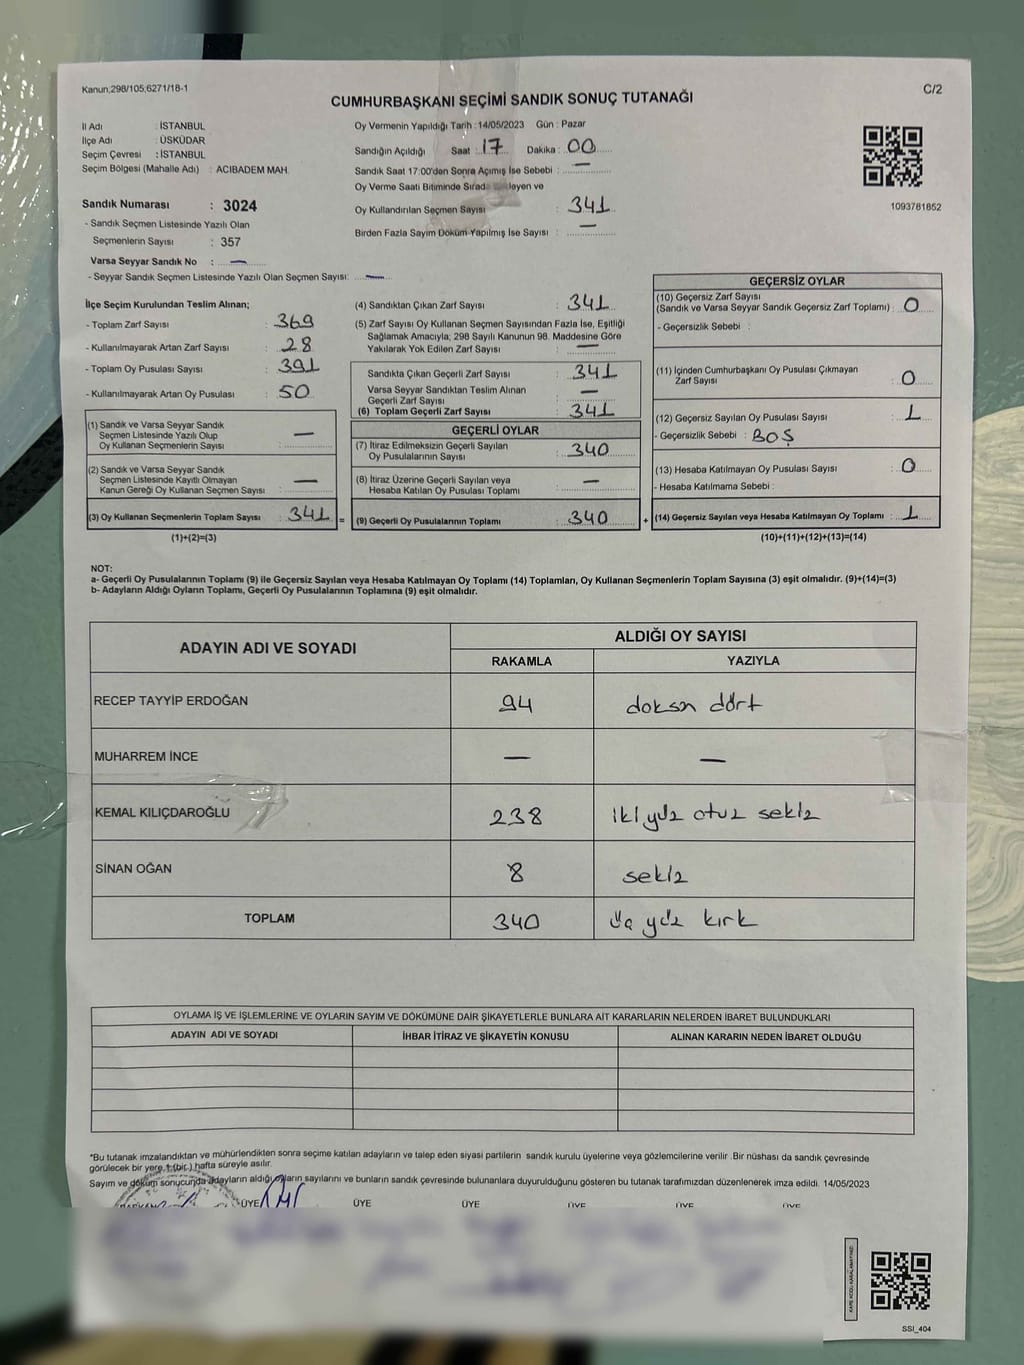 Kanun;298/105;6271/18-1
C/2
CUMHURBAŞKANI SEÇİMİ SANDIK SONUÇ TUTANAĞI
İl Adı : İSTANBUL
İlçe Adı : ÜSKÜDAR
Seçim Çevresi : İSTANBUL
Seçim Bölgesi (Mahalle Adı) : ACIBADEM MAH.
Sandık Numarası : 3024
- Sandık Seçmen Listesinde Yazılı Olan
Seçmenlerin Sayısı : 357
Varsa Seyyar Sandık No : —
- Seyyar Sandık Seçmen Listesinde Yazılı Olan Seçmen Sayısı: —
Oy Vermenin Yapıldığı Tarih : 14/05/2023 Gün : Pazar
Sandığın Açıldığı Saat : 17 Dakika : 00
Sandık Saat 17:00'den Sonra Açımış İse Sebebi : —
Oy Verme Saati Bitiminde Sırada Bekleyen ve
Oy Kullandırılan Seçmen Sayısı : 341
Birden Fazla Sayım Döküm Yapılmış İse Sayısı : —
1093781852
İlçe Seçim Kurulundan Teslim Alınan;
- Toplam Zarf Sayısı : 369
- Kullanılmayarak Artan Zarf Sayısı : 28
- Toplam Oy Pusulası Sayısı : 391
- Kullanılmayarak Artan Oy Pusulası : 50
(1) Sandık ve Varsa Seyyar Sandık
Seçmen Listesinde Yazılı Olup
Oy Kullanan Seçmenlerin Sayısı : —
(2) Sandık ve Varsa Seyyar Sandık
Seçmen Listesinde Kayıtlı Olmayan
Kanun Gereği Oy Kullanan Seçmen Sayısı : —
(3) Oy Kullanan Seçmenlerin Toplam Sayısı : 341 =
(1)+(2)=(3)
(4) Sandıktan Çıkan Zarf Sayısı : 341
(5) Zarf Sayısı Oy Kullanan Seçmen Sayısından Fazla İse, Eşitliği
Sağlamak Amacıyla; 298 Sayılı Kanunun 98. Maddesine Göre
Yakılarak Yok Edilen Zarf Sayısı : —
Sandıkta Çıkan Geçerli Zarf Sayısı : 341
Varsa Seyyar Sandıktan Teslim Alınan
Geçerli Zarf Sayısı : —
(6) Toplam Geçerli Zarf Sayısı : 341
GEÇERLİ OYLAR
(7) İtiraz Edilmeksizin Geçerli Sayılan
Oy Pusulalarının Sayısı : 340
(8) İtiraz Üzerine Geçerli Sayılan veya
Hesaba Katılan Oy Pusulası Toplamı : —
(9) Geçerli Oy Pusulalarının Toplamı : 340 +
GEÇERSİZ OYLAR
(10) Geçersiz Zarf Sayısı
(Sandık ve Varsa Seyyar Sandık Geçersiz Zarf Toplamı) : 0
- Geçersizlik Sebebi :
(11) İçinden Cumhurbaşkanı Oy Pusulası Çıkmayan
Zarf Sayısı : 0
(12) Geçersiz Sayılan Oy Pusulası Sayısı : 1
- Geçersizlik Sebebi : BOŞ
(13) Hesaba Katılmayan Oy Pusulası Sayısı : 0
- Hesaba Katılmama Sebebi :
(14) Geçersiz Sayılan veya Hesaba Katılmayan Oy Toplamı : 1
(10)+(11)+(12)+(13)=(14)
NOT:
a- Geçerli Oy Pusulalarının Toplamı (9) ile Geçersiz Sayılan veya Hesaba Katılmayan Oy Toplamı (14) Toplamları, Oy Kullanan Seçmenlerin Toplam Sayısına (3) eşit olmalıdır. (9)+(14)=(3)
b- Adayların Aldığı Oyların Toplamı, Geçerli Oy Pusulalarının Toplamına (9) eşit olmalıdır.
ADAYIN ADI VE SOYADI
ALDIĞI OY SAYISI
RAKAMLA YAZIYLA
RECEP TAYYİP ERDOĞAN 94 doksn dört
MUHARREM İNCE — —
KEMAL KILIÇDAROĞLU 238 iki yüz otuz sekiz
SİNAN OĞAN 8 sekiz
TOPLAM 340 üç yüz kırk
OYLAMA İŞ VE İŞLEMLERİNE VE OYLARIN SAYIM VE DÖKÜMÜNE DAİR ŞİKAYETLERLE BUNLARA AİT KARARLARIN NELERDEN İBARET BULUNDUKLARI
ADAYIN ADI VE SOYADI İHBAR İTİRAZ VE ŞİKAYETİN KONUSU ALINAN KARARIN NEDEN İBARET OLDUĞU
*Bu tutanak imzalandıktan ve mühürlendikten sonra seçime katılan adayların ve talep eden siyasi partilerin sandık kurulu üyelerine veya gözlemcilerine verilir .Bir nüshası da sandık çevresinde
görülecek bir yere 1 (bir ) hafta süreyle asılır.
Sayım ve döküm sonucunda adayların aldığı oyların sayılarını ve bunların sandık çevresinde bulunanlara duyurulduğunu gösteren bu tutanak tarafımızdan düzenlenerek imza edildi. 14/05/2023
BAŞKAN ÜYE ÜYE ÜYE ÜYE ÜYE ÜYE
KARE KODU KARALAMAYINIZ!
SSI_404